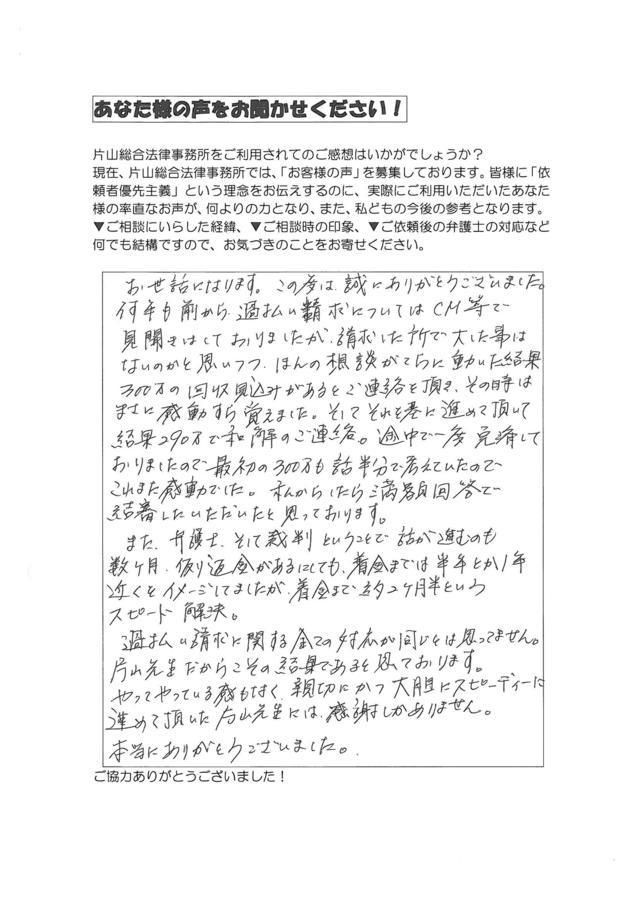 あなた様の声をお聞かせください！
片山総合法律事務所をご利用されてのご感想はいかがでしょうか？
現在、片山総合法律事務所では、「お客様の声」を募集しております。皆様に「依
頼者優先主義」という理念をお伝えするのに、実際にご利用いただいたあなた
様の率直なお声が、何よりの力となり、また、私どもの今後の参考となります。
▼ご相談にいらした経緯、▼ご相談時の印象、▼ご依頼後の弁護士の対応など
何でも結構ですので、お気づきのことをお寄せください。
お世話になります。この度は、誠にありがとうございました。
何年も前から、過払い請求についてはCM等で
見聞きはしておりましたが、請求した所で大した事は
ないのかと思いつつ、ほんの相談がてらに動いた結果
300万の回収見込みがあるとご連絡を頂き、その時は
まさに感動すら覚えました。そしてそれを基に進めて頂いて
結果290万で和解のご連絡。途中で一度完済して
おりましたので最初の300万も話半分で考えていたので
これまた感動でした。私からしたら満額回答で
結審したいただいたと思っております。
また、弁護士、そして裁判ということで話が進むのも
数ヶ月、仮り返金があるにしても、着金までは半年とか1年
近くとイメージしてましたが、着金まで約2ヶ月半という
スピード解決。
過払い請求に関する全ての対応が同じとは思ってません。
片山先生だからこその結果であると思っております。
やってやっている感もなく、親切にかつ大胆にスピーディーに
進めて頂いた片山先生には、感謝しかありません。
本当にありがとうございました。
ご協力ありがとうございました！